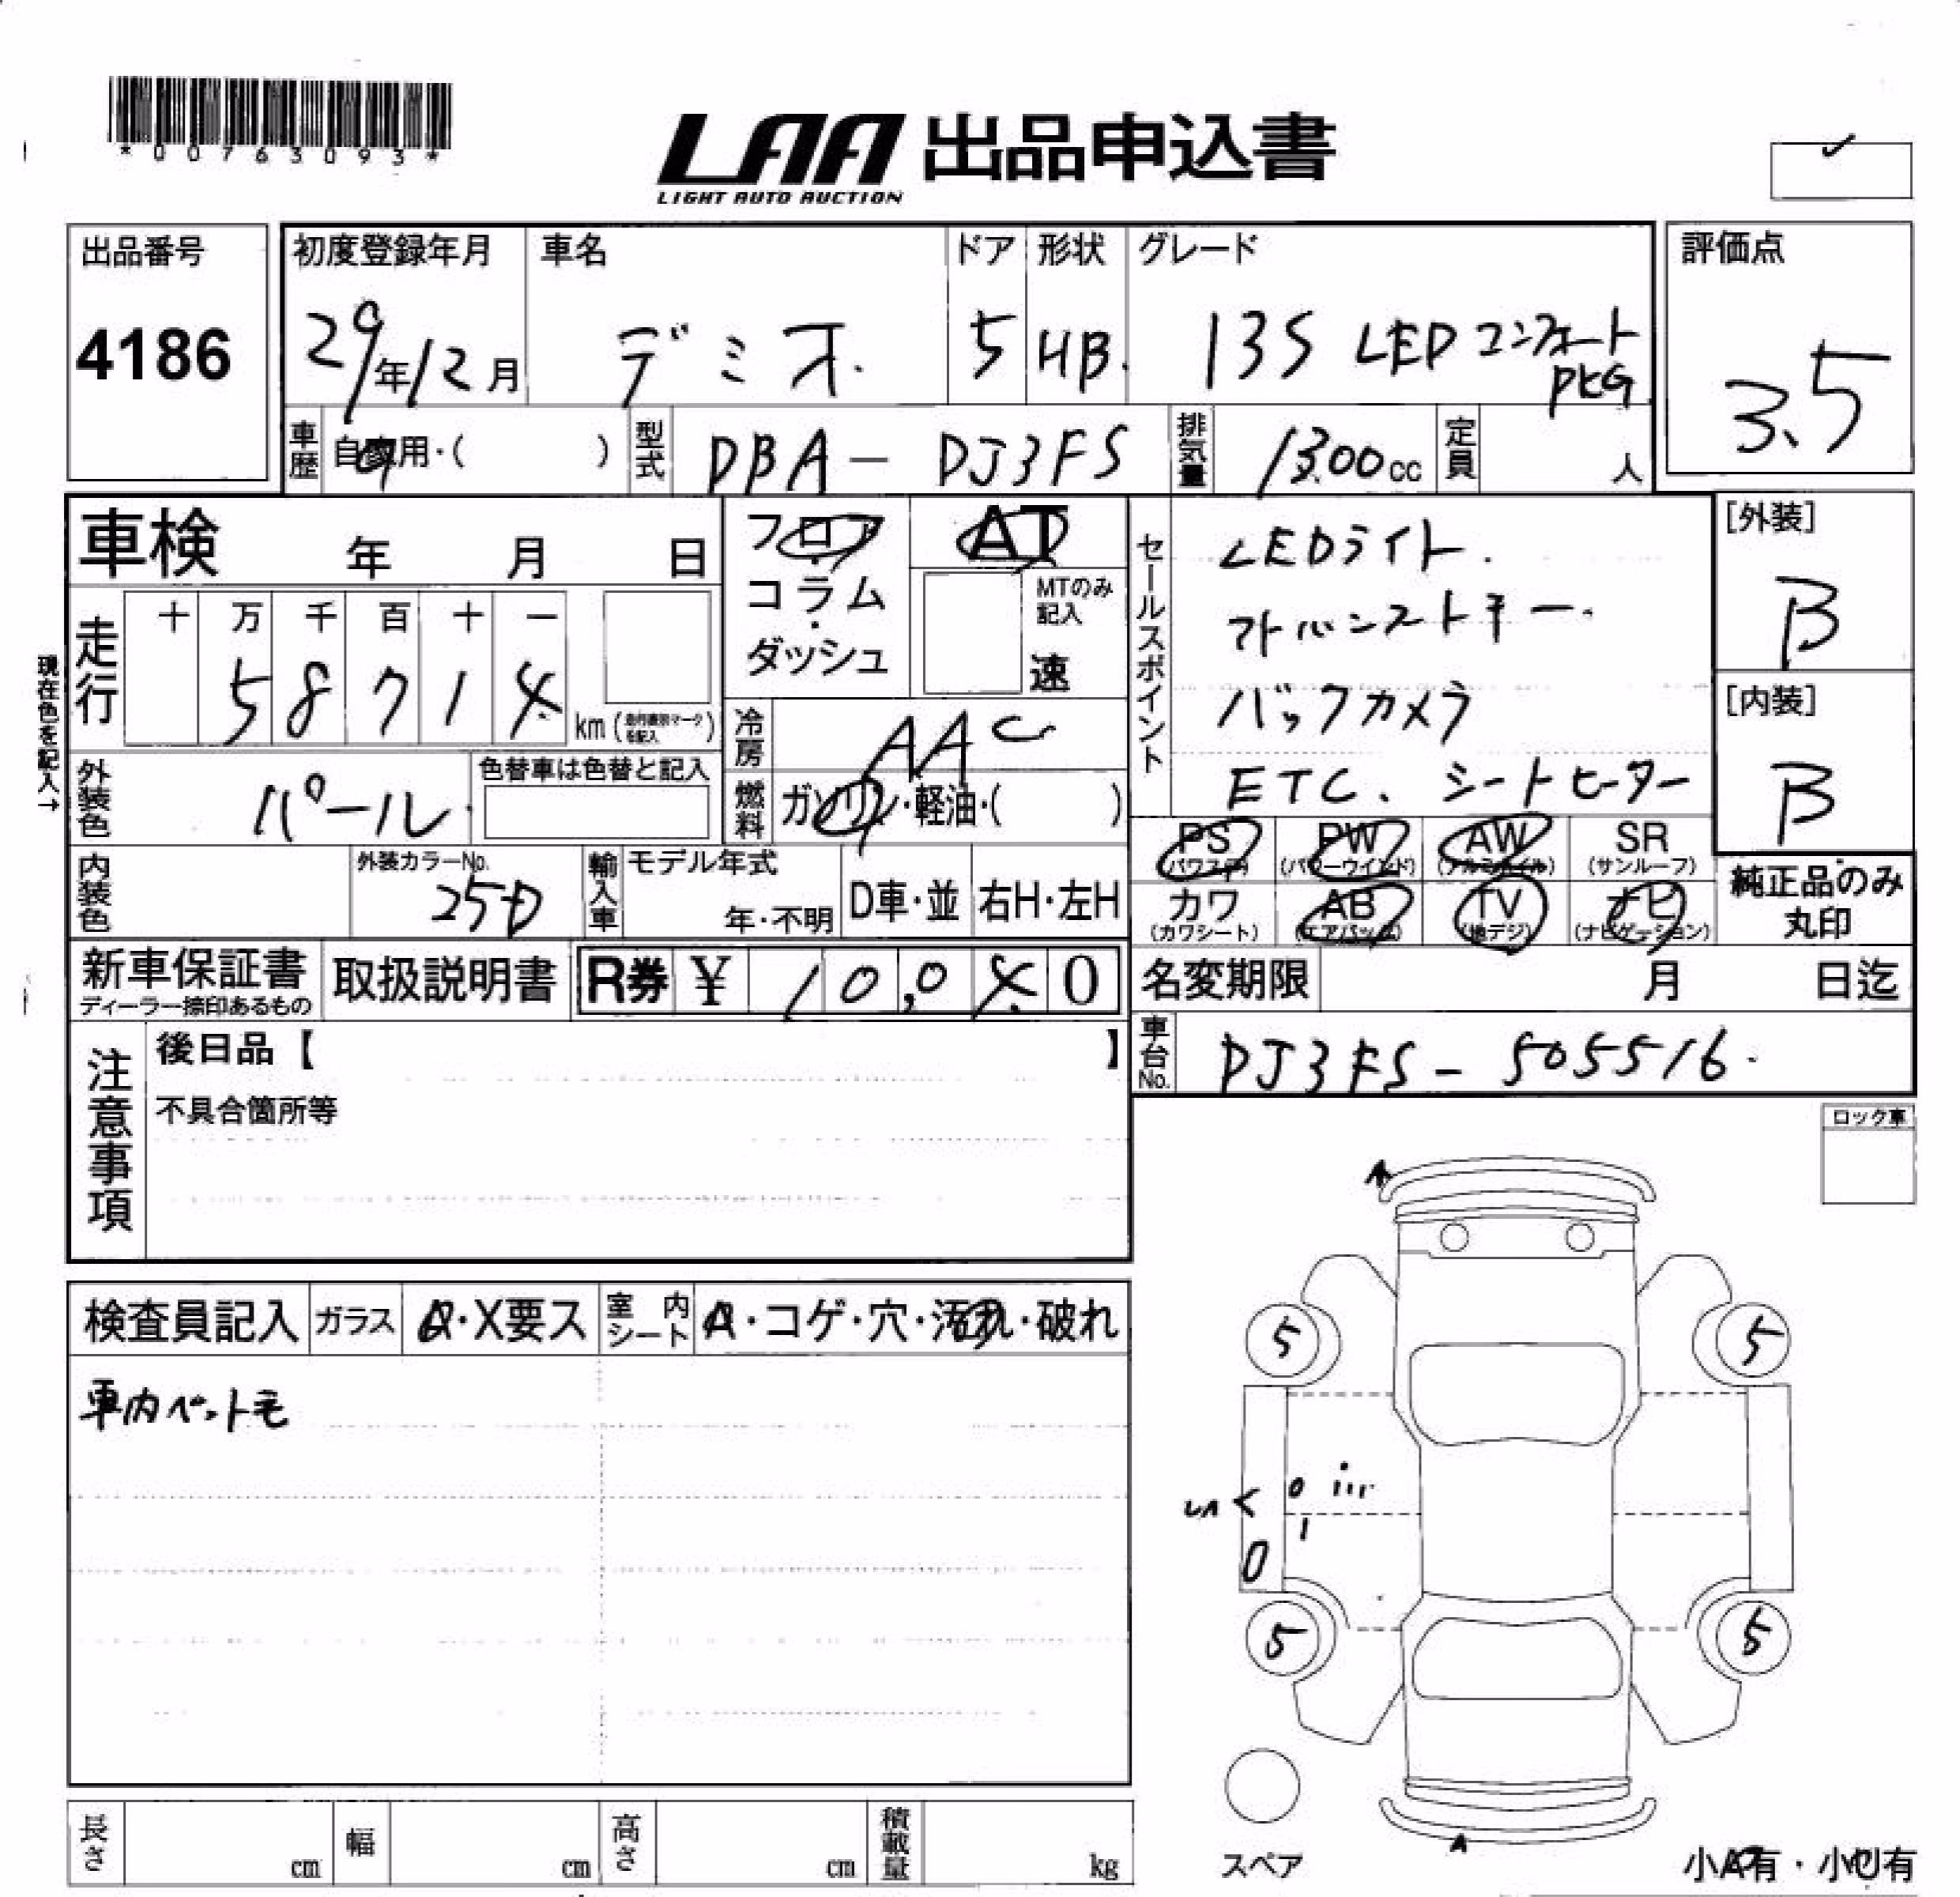 *00763093*
LAA 出品申込書
LIGHT AUTO AUCTION
出品番号
4186
初度登録年月
29年12月
車名
デミオ.
ドア
5
形状
HB.
グレード
13S LEDコンフォート
PKG
評価点
3.5
車歴
自家用・( )
型式
DBA-DJ3FS
排気量
1300cc
定員
人
車検 年 月 日
フロア
・
コラム
・
ダッシュ
AT
MTのみ
記入
速
セールスポイント
LEDライト.
アドバンストキー.
バックカメラ
ETC. シートヒーター
[外装]
B
[内装]
B
現在色を記入→
走行
十 万 千 百 十 一
5 8 7 1 4
km
冷房
AAC
外装色
パール.
色替車は色替と記入
燃料
ガソリン・軽油・( )
PS
(パワステ)
PW
(パワーウインド)
AW
(アルミホイル)
SR
(サンルーフ)
カワ
(カワシート)
AB
(エアバック)
TV
(地デジ)
ナビ
(ナビゲーション)
純正品のみ
丸印
内装色
外装カラーNo.
25D
輸入車
モデル年式
年・不明
D車・並
右H・左H
新車保証書
ディーラー捺印あるもの
取扱説明書
R券 ¥
名変期限 月 日迄
車台No.
DJ3FS-505516.
注意事項
後日品【 】
不具合箇所等
ロック車
検査員記入
ガラス
A・X要ス
室内シート
A・コゲ・穴・汚れ・破れ
車内ペット毛
A
5
5
5
5
長さ cm
幅 cm
高さ cm
積載量 kg
スペア
A
小A有・小U有